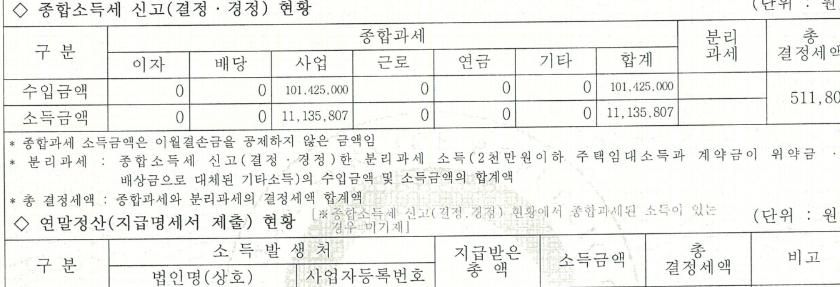 ◇ 종합소득세 신고(결정 · 경정) 현황 (단위 : 원
구 분 종합과세 분리과세 총결정세액
이자 배당 사업 근로 연금 기타 합계
수입금액 0 0 101,425,000 0 0 0 101,425,000
소득금액 0 0 11,135,807 0 0 0 11,135,807
511,80
* 종합과세 소득금액은 이월결손금을 공제하지 않은 금액임
* 분리과세 : 종합소득세 신고(결정 · 경정)한 분리과세 소득(2천만원이하 주택임대소득과 계약금이 위약금 ·
배상금으로 대체된 기타소득)의 수입금액 및 소득금액의 합계액
* 총 결정세액 : 종합과세와 분리과세의 결정세액 합계액
◇ 연말정산(지급명세서 제출) 현황 [※종합소득세 신고(결정.경정) 현황에서 종합과세된 소득이 있는 경우 미기재] (단위 : 원
구 분 소 득 발 생 처 지급받은 총 액 소득금액 총 결정세액 비고
법인명(상호) 사업자등록번호